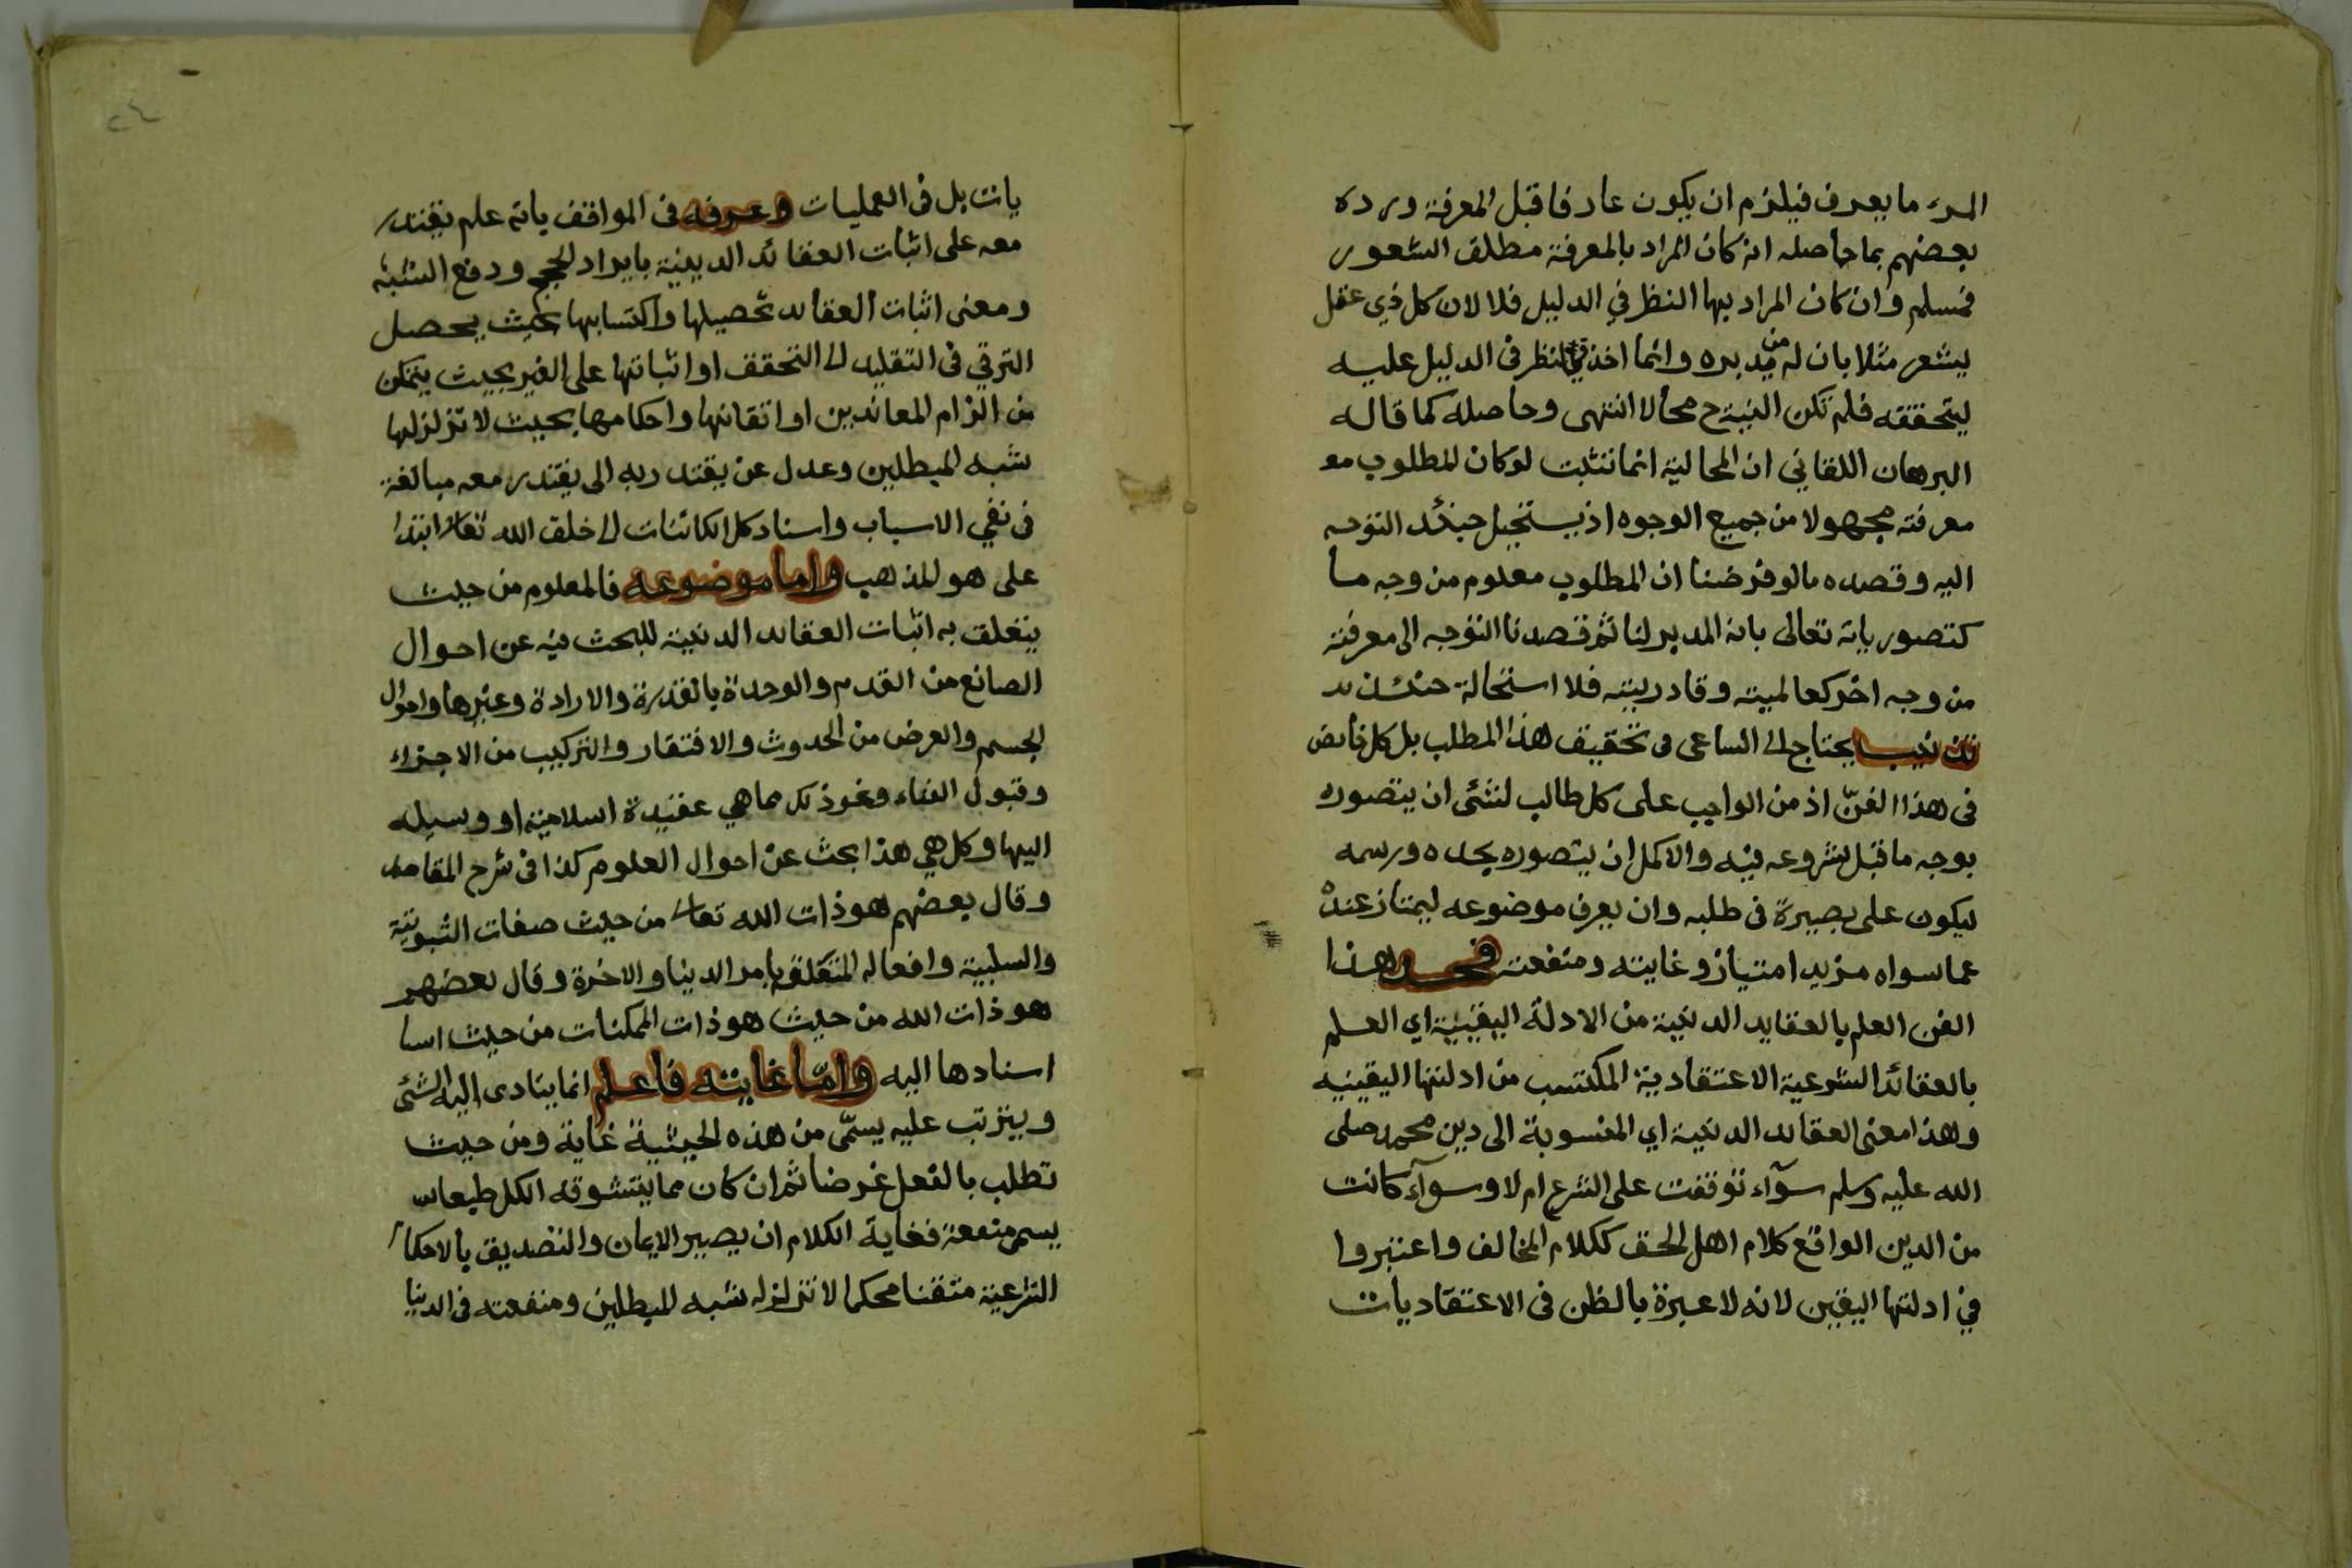 المرء ما يعرف فيلزم ان يكون عارفا قبل المعرفة ورده
بعضهم بما حاصله انه كان المراد بالمعرفة مطلق الشعور
فمسلم وان كان المراد بها النظر في الدليل فلا لان كل ذي عقل
يشعر مثلا بان له من يدبره وانما اخذ في النظر في الدليل عليه
ليتحققه فلم تكن النية ح محالا انتهى وحاصله كما قاله
البرهان اللقاني ان المحالية انما تثبت لو كان المطلوب مع
معرفته مجهولا من جميع الوجوه اذ يستحيل حينئذ التوجه
اليه وقصده مالو فرضنا ان المطلوب معلوم من وجه ما
كتصور ياته تعالى بانه المدبر لنا ثم قصدنا التوجه الى معرفته
من وجه اخر كعالميته وقادريته فلا استحالة حينئذ
تذنيب يحتاج الى الساعى فى تحقيق هذا المطلب بل كل خايض
فى هذا الفنّ اذ من الواجب على كل طالب لشئ ان يتصوره
بوجه ما قبل شروعه فيه والاكمل ان يتصوره بحده ورسمه
ليكون على بصيرة فى طلبه وان يعرف موضوعه ليمتاز عنده
عما سواه مزيد امتياز وغايته ومنفعته فحد هذا
الفن العلم بالعقايد الدينية من الادلة اليقينية اي العلم
بالعقائد الشرعية الاعتقادية المكتسب من ادلتها اليقينيه
وهذا معنى العقائد الدينية اي المنسوبة الى دين محمد صلى
الله عليه وسلم سوآء توقفت على الشرع ام لا وسوآء كانت
من الدين الواقع كلام اهل الحق ككلام المخالف واعتبروا
في ادلتها اليقين لانه لا عبرة بالظن فى الاعتقاديات
يات بل فى العمليات وعرفه فى المواقف بانه علم يقتدر
معه على اثبات العقائد الدينية بايراد الحجج ودفع الشبه
ومعنى اثبات العقائد تحصيلها واكتسابها بحيث يحصل
الترقي فى التقليد الى التحقق او اثباتها على الغير بحيث يتمكن
من الزام المعاندين او اتقانها واحكامها بحيث لا تزلزلها
شبه المبطلين وعدل عن يقتدر به الى يقتدر معه مبالغة
فى نفي الاسباب واسناد كل الكائنات الى خلق الله تعالى ابتدا
على هو المذهب واما موضوعه فالمعلوم من حيث
يتعلق به اثبات العقائد الدينية للبحث فيه عن احوال
الصانع من القدم والوحدة بالقدرة والارادة وغيرها واحوال
الجسم والعرض من الحدوث والافتقار والتركيب من الاجزاء
وقبول الفناء ونحو ذلك مما هي عقيدة اسلامية او وسيله
اليها وكل هي هذا بحث عن احوال العلوم كذا فى شرح المقاصد
وقال بعضهم هو ذات الله تعالى من حيث صفات الثبوتية
والسلبية وافعاله المتعلقة بامر الدينا والاخرة وقال بعضهم
هو ذات الله من حيث هو ذات الممكنات من حيث اسا
اسنادها اليه وامّا غايته فاعلم انما ينادى اليه الشئ
ويترتب عليه يسمّى من هذه الحيثية غاية ومن حيث
تطلب بالفعل غرضا ثم ان كان مما يتشوقه الكل طبعا
يسمى منفعة فغاية الكلام ان يصير الايمان والتصديق بالاحكا
الشرعية متقنا محكما لا تزلزله شبه المبطلين ومنفعته فى الدينا